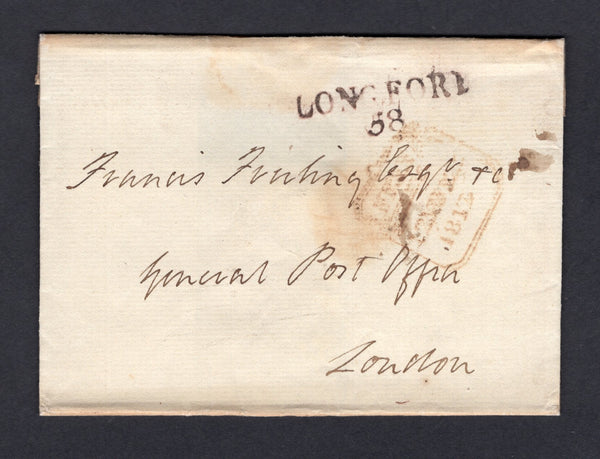 LONGFORD
58
Francis Freeling Esqr &c
General Post Office
London
1812